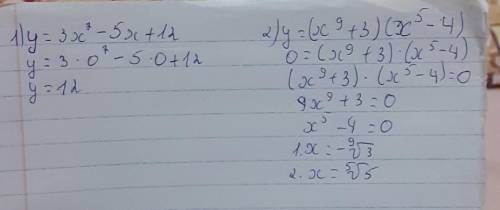 1) y = 3x⁷ - 5x + 12
y = 3 · 0⁷ - 5 · 0 + 12
y = 12
2) y = (x⁹ + 3)(x⁵ - 4)
0 = (x⁹ + 3) · (x⁵ - 4)
(x⁹ + 3) · (x⁵ - 4) = 0
9x⁹ + 3 = 0
x⁵ - 4 = 0
1. x = -⁹√3
2. x = ⁵√5